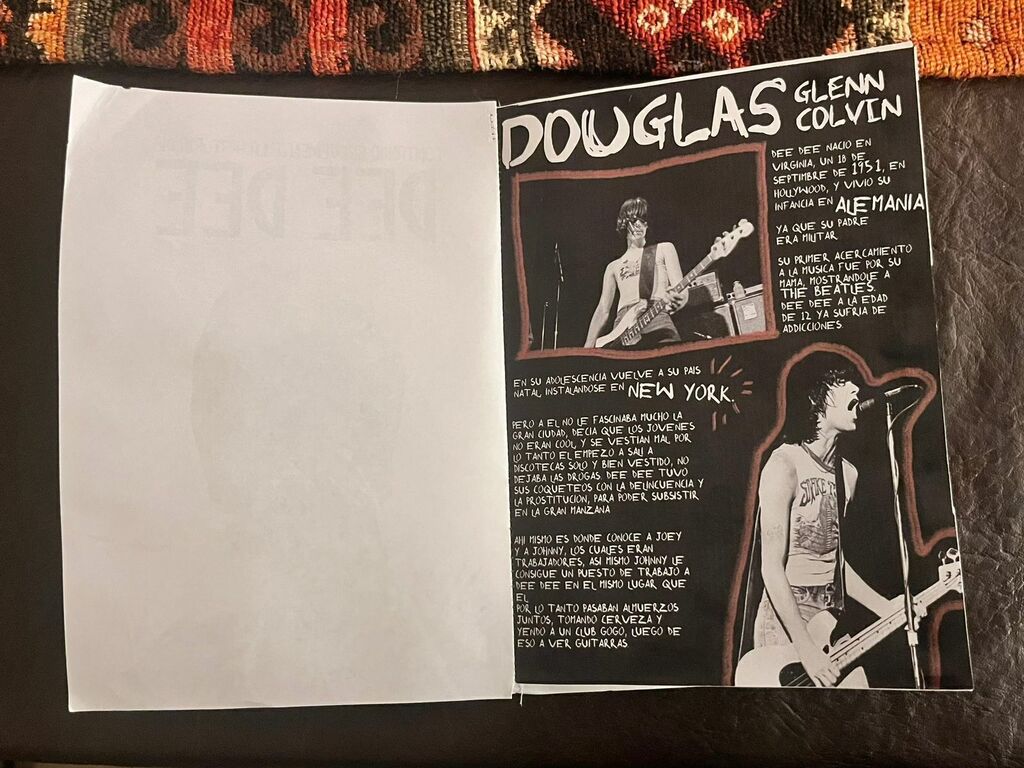 DEE DEE
DOUGLAS
GLENN
COLVIN
DEE DEE NACIO EN
VIRGINIA, UN 18 DE
SEPTIMBRE DE 1951, EN
HOLLYWOOD, Y VIVIO SU
INFANCIA EN ALEMANIA
YA QUE SU PADRE
ERA MILITAR
SU PRIMER ACERCAMIENTO
A LA MUSICA FUE POR SU
MAMA, MOSTRANDOLE A
THE BEATLES.
DEE DEE A LA EDAD
DE 12 YA SUFRIA DE
ADICCIONES
EN SU ADOLESCENCIA VUELVE A SU PAIS
NATAL, INSTALANDOSE EN NEW YORK.
PERO A EL NO LE FASCINABA MUCHO LA
GRAN CIUDAD, DECIA QUE LOS JOVENES
NO ERAN COOL, Y SE VESTIAN MAL, POR
LO TANTO EL EMPEZO A SALI A
DISCOTECAS SOLO Y BIEN VESTIDO, NO
DEJABA LAS DROGAS. DEE DEE TUVO
SUS COQUETEOS CON LA DELINCUENCIA Y
LA PROSTITUCION, PARA PODER SUBSISTIR
EN LA GRAN MANZANA
AHI MISMO ES DONDE CONOCE A JOEY
Y A JOHNNY, LOS CUALES ERAN
TRABAJADORES, ASI MISMO JOHNNY LE
CONSIGUE UN PUESTO DE TRABAJO A
DEE DEE EN EL MISMO LUGAR QUE
EL
POR LO TANTO PASABAN ALMUERZOS
JUNTOS, TOMANDO CERVEZA Y
YENDO A UN CLUB GOGO, LUEGO DE
ESO A VER GUITARRAS